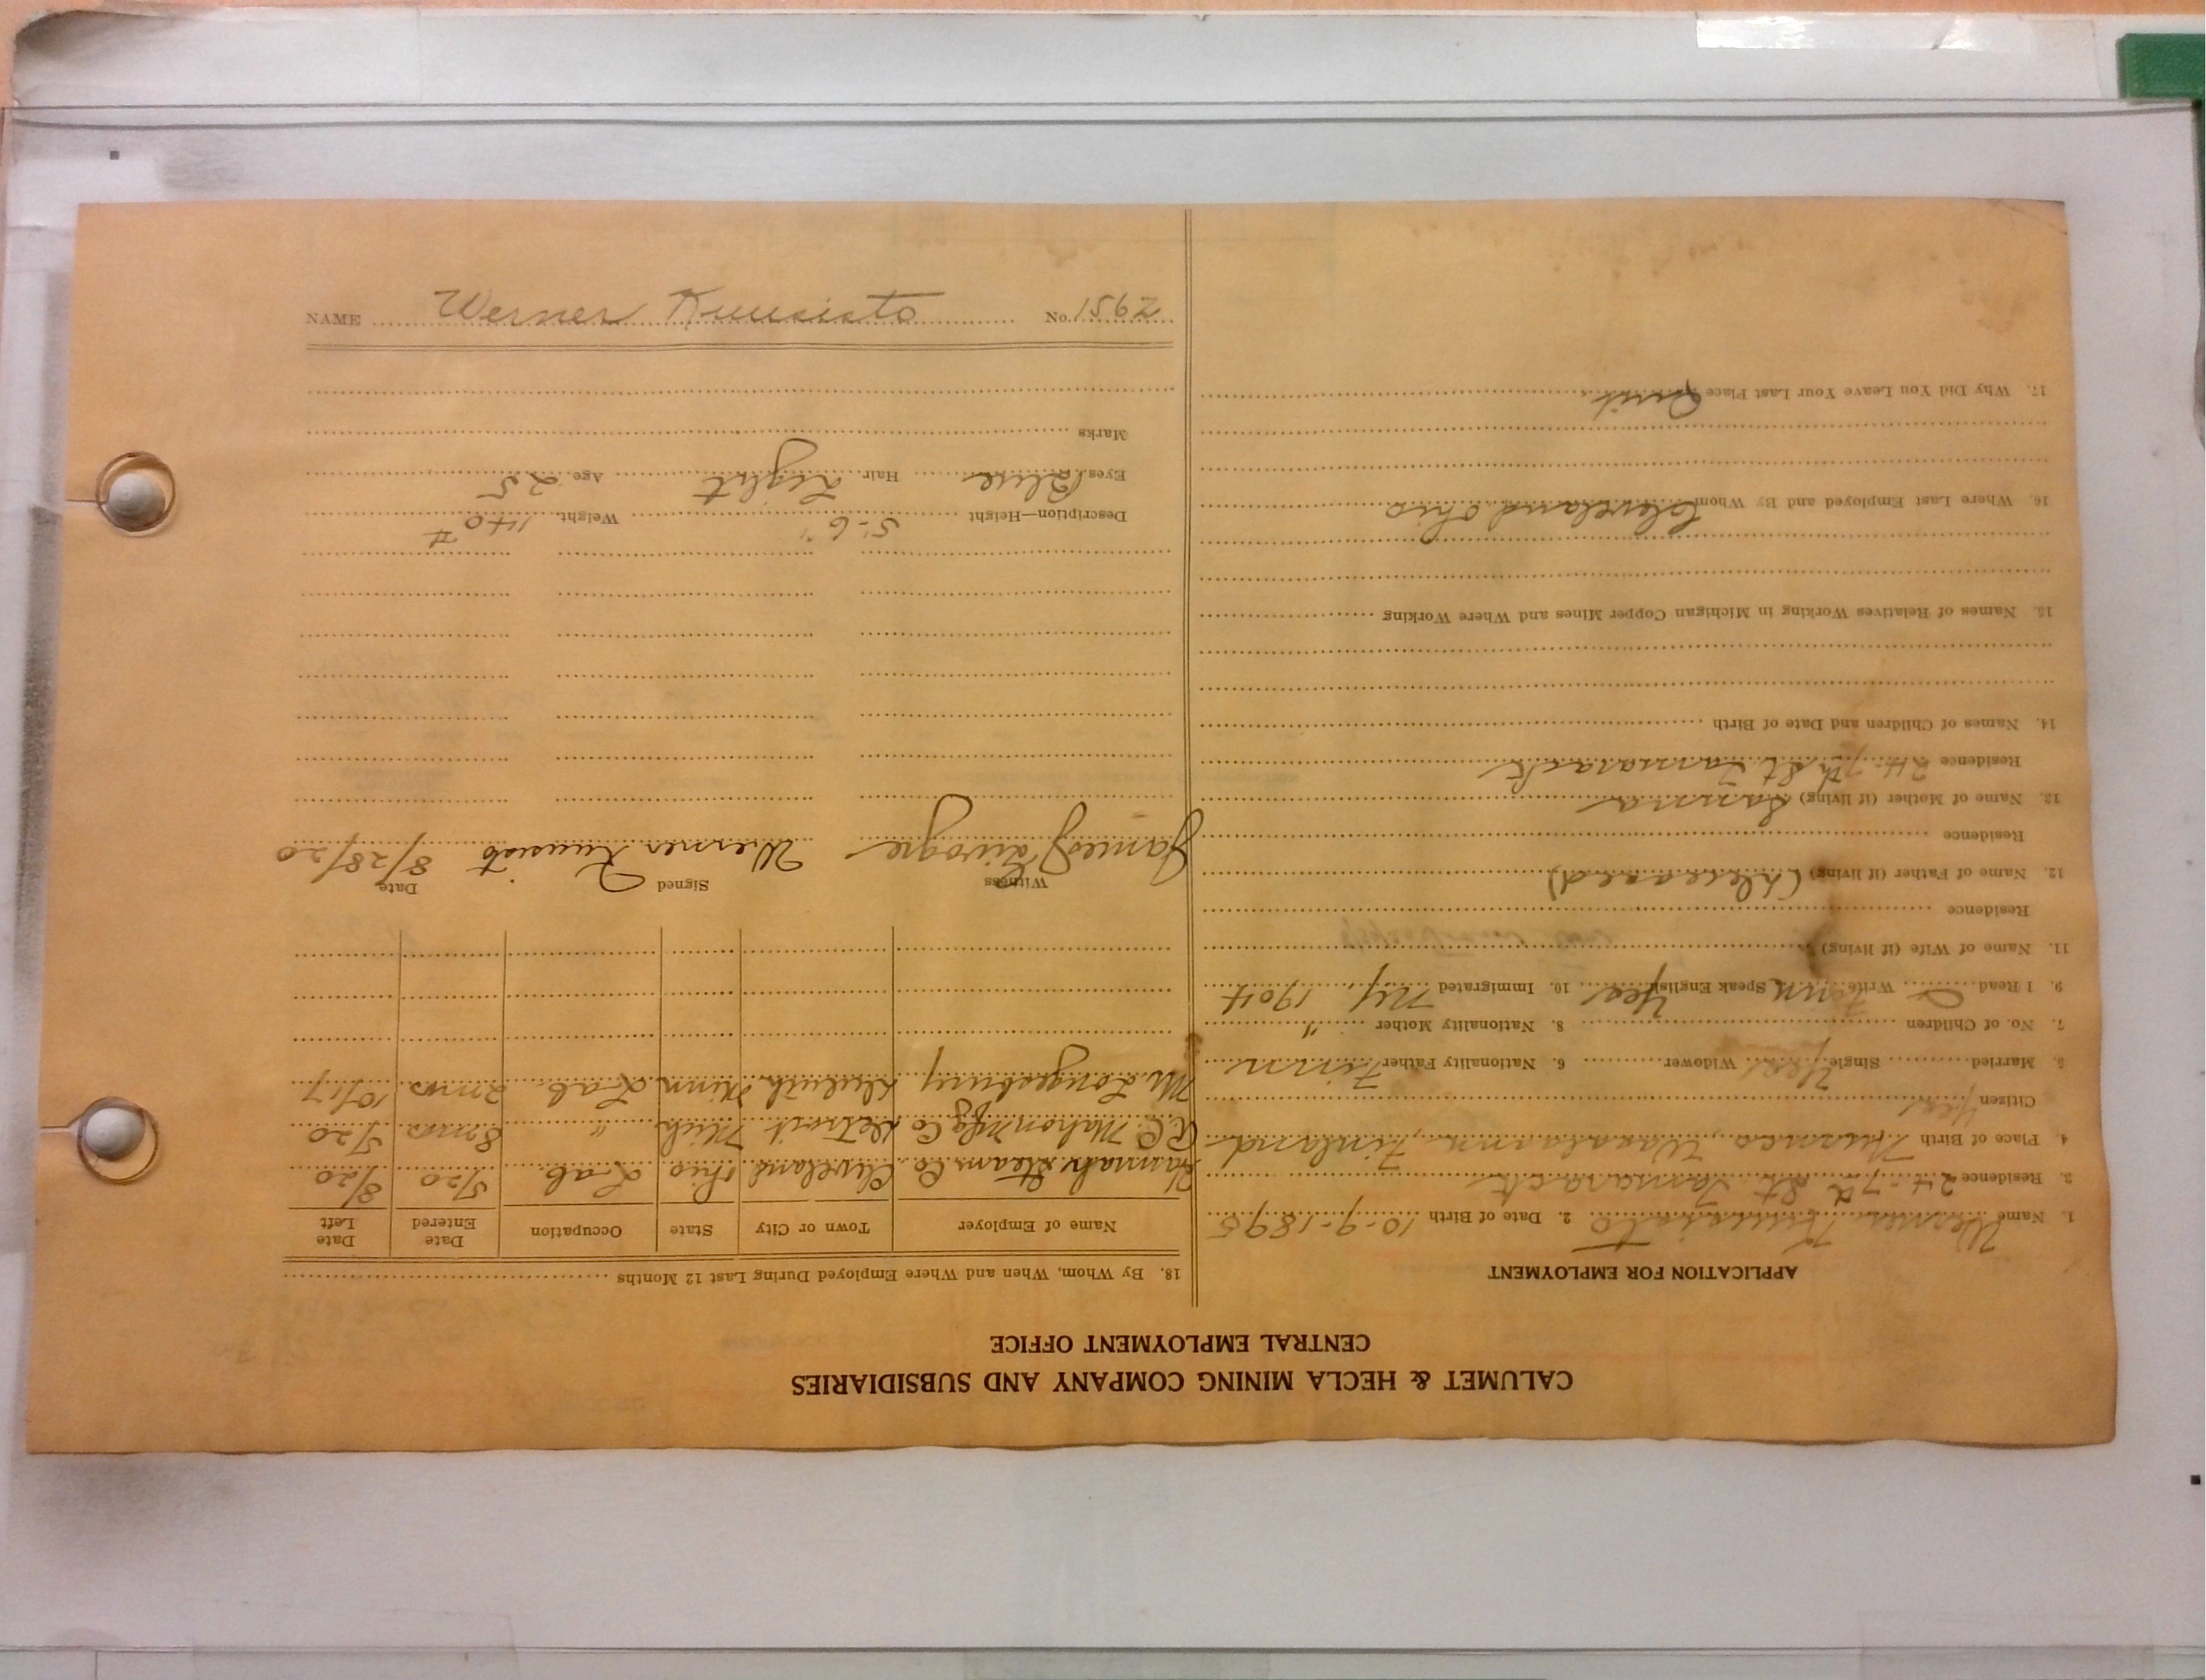 CALUMET & HECLA MINING COMPANY AND SUBSIDIARIES
CENTRAL EMPLOYMENT OFFICE
APPLICATION FOR EMPLOYMENT
1. Name Werner Kuusisto 2. Date of Birth 10-9-1895
3. Residence 24-7th St Tamarack
4. Place of Birth Finland
Citizen Yes
5. Married Single Yes Widower 6. Nationality Father Finn
7. No. of Children 8. Nationality Mother "
9. I Read Write Finn Speak English Yes 10. Immigrated NY. 1904
11. Name of Wife (if living)
Residence
12. Name of Father (if living) (deceased)
Residence
13. Name of Mother (if living) Sanna
Residence 24-7th St Tamarack
14. Names of Children and Date of Birth
15. Names of Relatives Working in Michigan Copper Mines and Where Working
16. Where Last Employed and By Whom Cleveland Ohio
17. Why Did You Leave Your Last Place Quit
18. By Whom, When and Where Employed During Last 12 Months
Name of Employer Town or City State Occupation Date Entered Date Left
Hannah Steam Co Cleveland Ohio Lab 5/20 8/20
R.C. Mahon Mfg Co Detroit Mich " 8 mos 5/20
Duluth Minn Lab 2 mos 10/17
Witness Signed Date
James Werner Kuusisto 8/28/20
Description—Height 5'-6" Weight 140#
Eyes Blue Hair Light Age 25
Marks
NAME Werner Kuusisto No. 1562